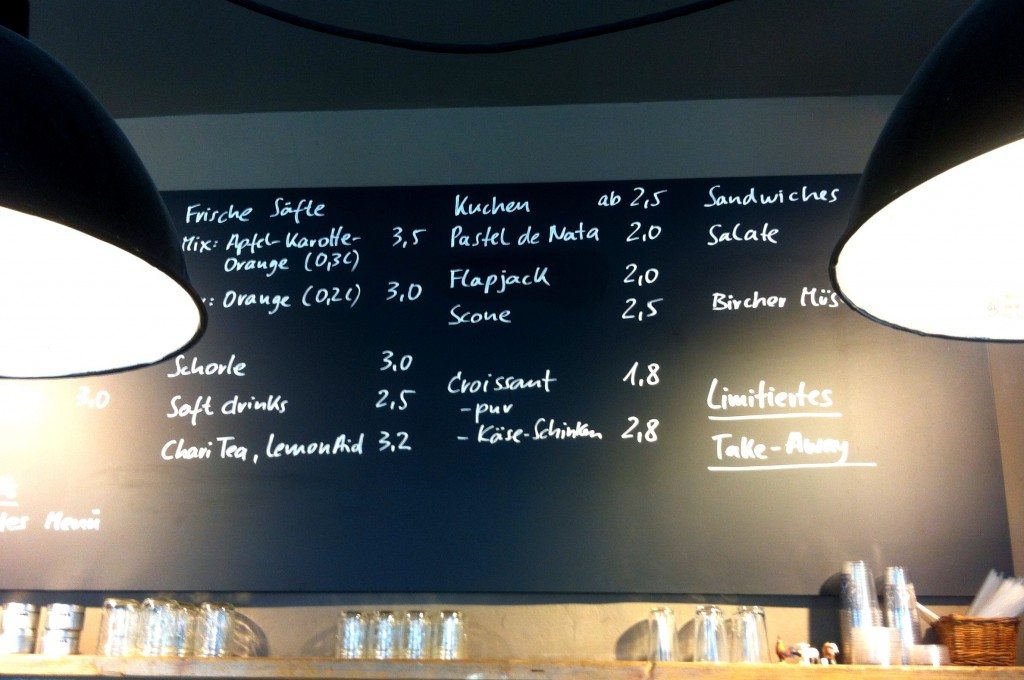 Frische Säfte
Mix: Apfel-Karotte- 3,5
Orange (0,3l)
: Orange (0,2l) 3,0
Schorle 3,0
Soft drinks 2,5
ChariTea, LemonAid 3,2
3,0
Menü
Kuchen ab 2,5
Pastel de Nata 2,0
Flapjack 2,0
Scone 2,5
Croissant 1,8
- pur
- Käse-Schinken 2,8
Sandwiches
Salate
Bircher Müs
Limitiertes
Take-Away